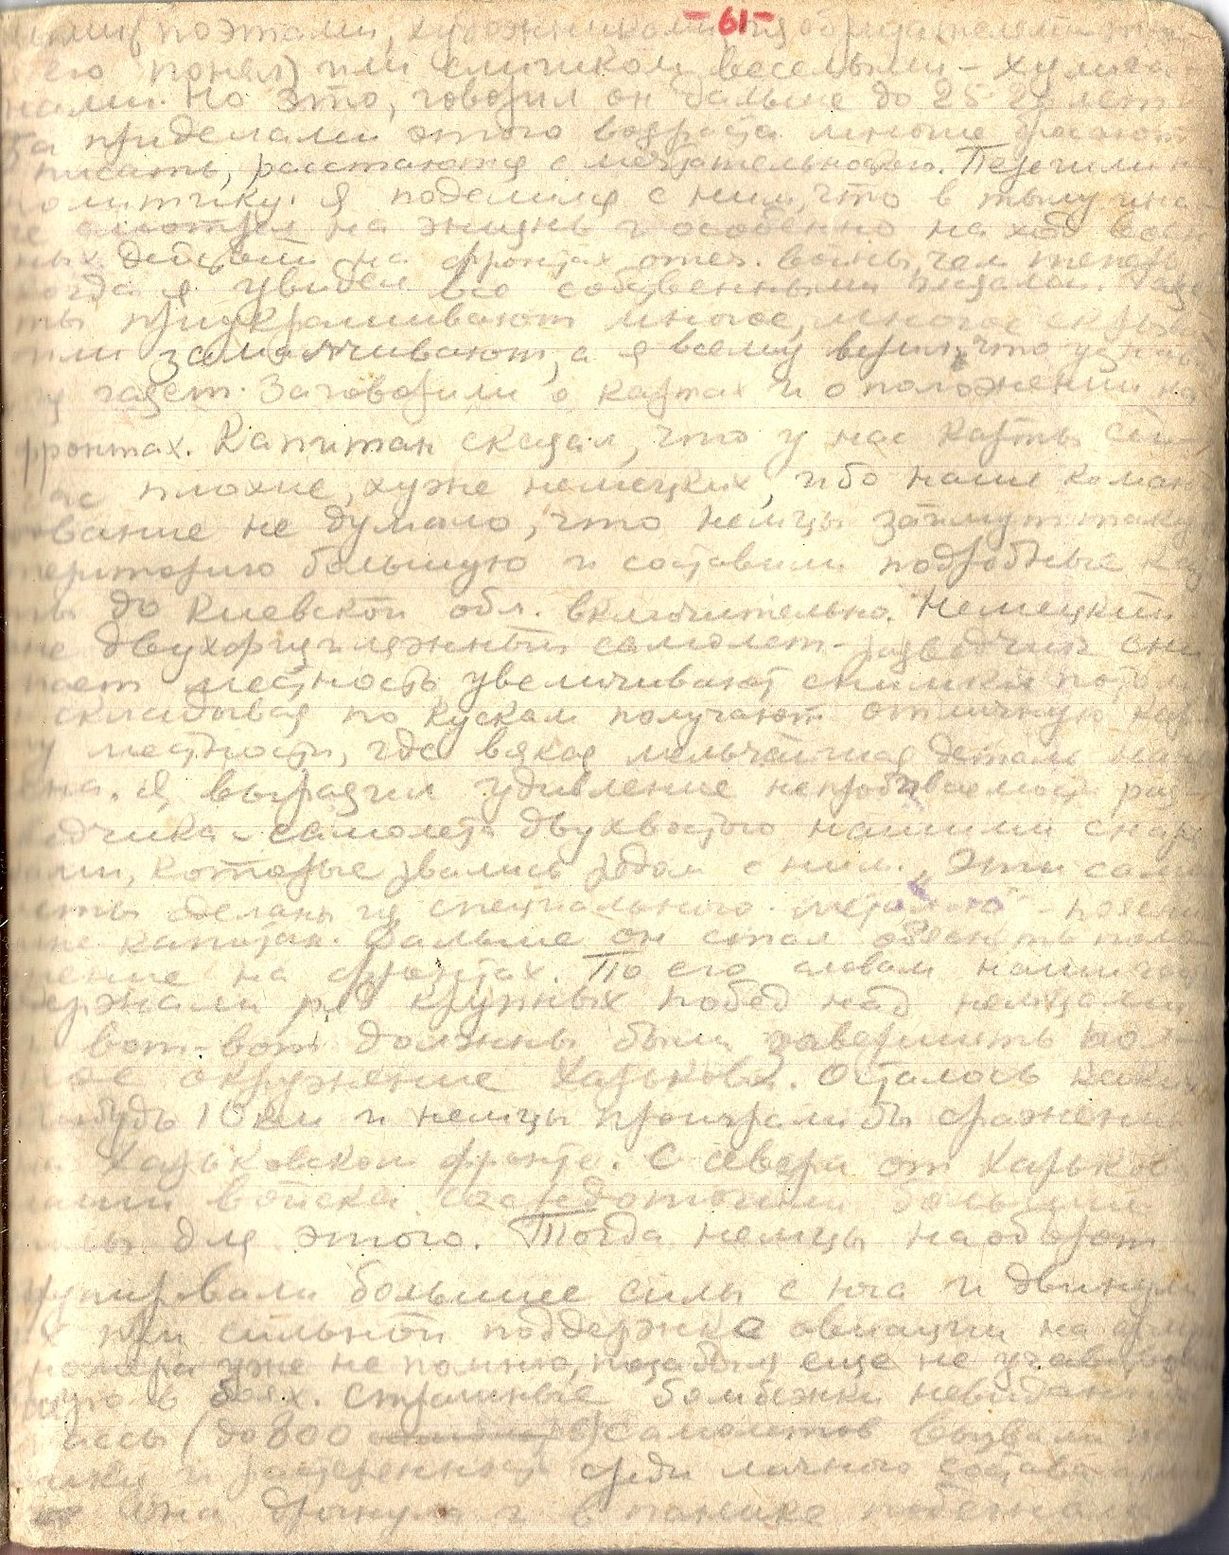 -61-
поэтами, художниками
его понял) или слишком веселыми - хулига-
нами. Но это, говорил он бальше до 25 лет
За приделами этого возраста многие бросают
писать, расстаются с мечтательностью. Перешли н
политику. Я поделился с ним, что в тылу ина-
че смотрел на жизнь и особенно на ход воен
ных действий на фронтах отеч. войны, чем теперь
когда я увидел все собственными глазами. Газе
ты приукрашивают многое, многое скры
или замалчивают, а я всему верил, что узнавал
из газет. Заговорили о картах и о положении на
фронтах. Капитан сказал, что у нас карты сей-
час плохие, хуже немецких, ибо наше коман
дование не думало, что немцы займут таку
територию большую и составили подробные кар
ты до Киевской обл. включительно. Немецкий
же двухфюзеляжный самолет-разведчик сни
мает местность увеличивают снимки потом
и складывая по кускам получают отличную кар
ту местности, где всякая мельчайшая деталь
Я выразил удивление непробиваемости раз-
ведчика-самолета двухвостого нашими снаря
дами, которые рвались рядом с ним. "Эти само
леты сделаны из специального металла" - поясни
мне капитан. Дальше он стал объяснять поло
жение на фронтах. По его словам наши части
держали ряд крупных побед над немцами
и вот-вот должны были завершить пол-
ное окружение Харькова. Осталось каких
нибудь 10 км и немцы проиграли бы сражение
на Харьковском фронте. С севера от Харькова
наши войска сосредоточили большие
силы для этого. Тогда немцы наоборот
группировали большие силы с юга и двинули
их при сильной поддержке авиации на армию
номера уже не помню, позабыл еще не участво
вшую в боях. Страшные бомбежки невиданной
массы (до 800 самолетов вызвали па
нику и растерянность среди личного состава арми
Она дрогнула и в панике побежала